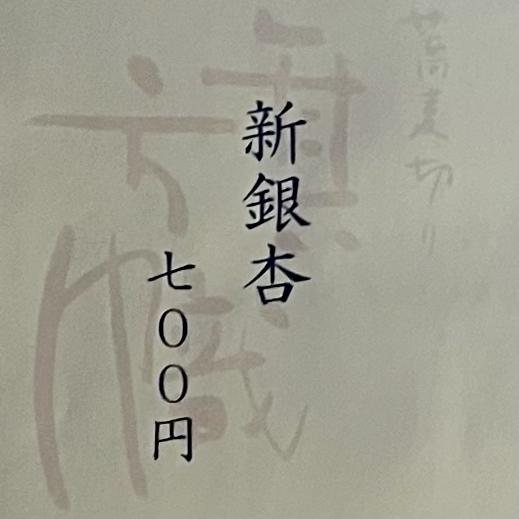 蕎麦切り
新銀杏
七〇〇円